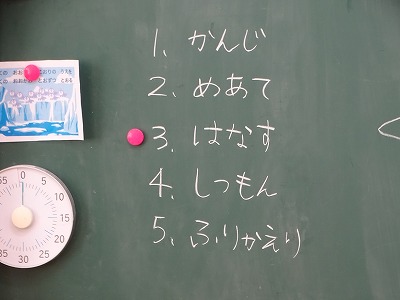 1. かんじ
2. めあて
3. はなす
4. しつもん
5. ふりかえり
55
0
5
10
15
20
25
30
35